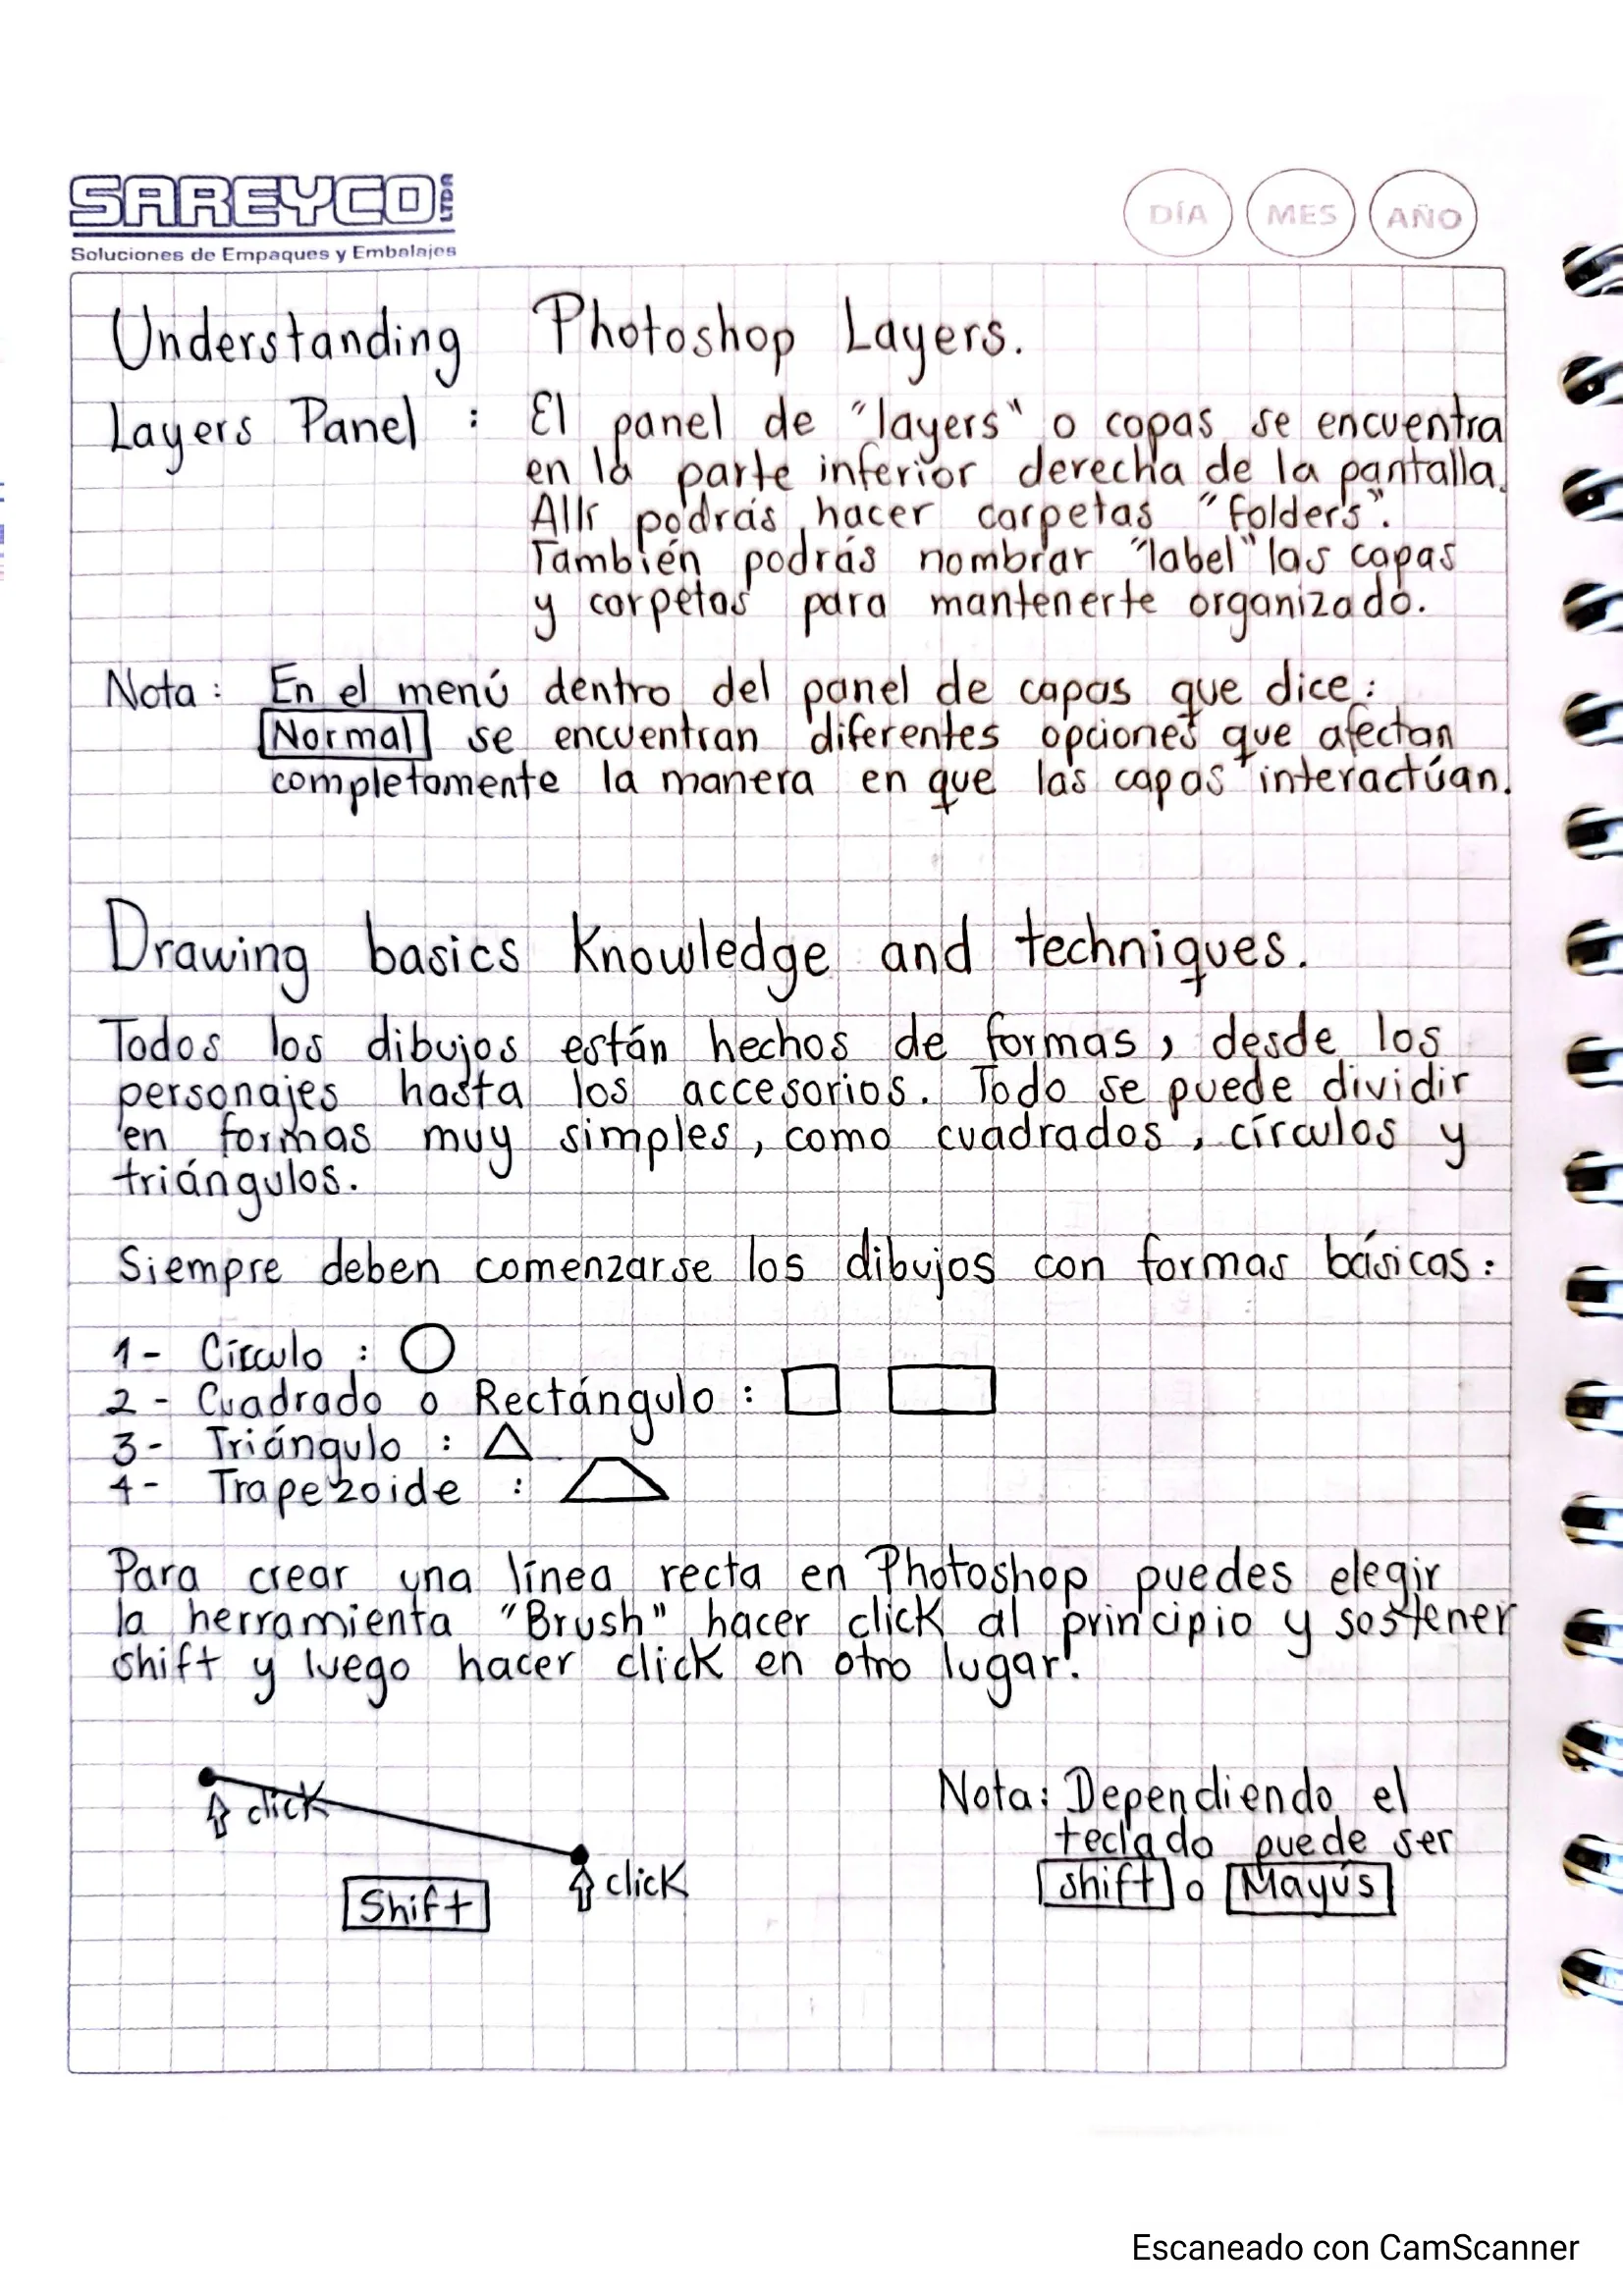 SAREYCO LTDA
Soluciones de Empaques y Embalajes
DÍA MES AÑO
Understanding Photoshop Layers.
Layers Panel : El panel de "layers" o capas se encuentra
en la parte inferior derecha de la pantalla.
Allí podrás hacer carpetas "folders".
También podrás nombrar "label" las capas
y carpetas para mantenerte organizado.
Nota: En el menú dentro del panel de capas que dice:
Normal se encuentran diferentes opciones que afectan
completamente la manera en que las capas interactúan.
Drawing basics Knowledge and techniques.
Todos los dibujos están hechos de formas, desde los
personajes hasta los accesorios. Todo se puede dividir
en formas muy simples, como cuadrados, círculos y
triángulos.
Siempre deben comenzarse los dibujos con formas básicas:
1- Círculo :
2- Cuadrado o Rectángulo :
3- Triángulo :
4- Trapezoide :
Para crear una línea recta en Photoshop puedes elegir
la herramienta "Brush" hacer click al principio y sostener
shift y luego hacer click en otro lugar.
click
click
Shift
Nota: Dependiendo el
teclado puede ser
shift o Mayús
Escaneado con CamScanner